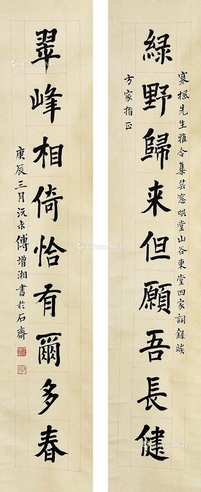 綠野歸來但願吾長健
寒楓先生雅令集夢窗
山谷東堂四家詞錄
方家指正
翠峰相倚恰有爾多春
庚辰三月
傅增湘書於石齋